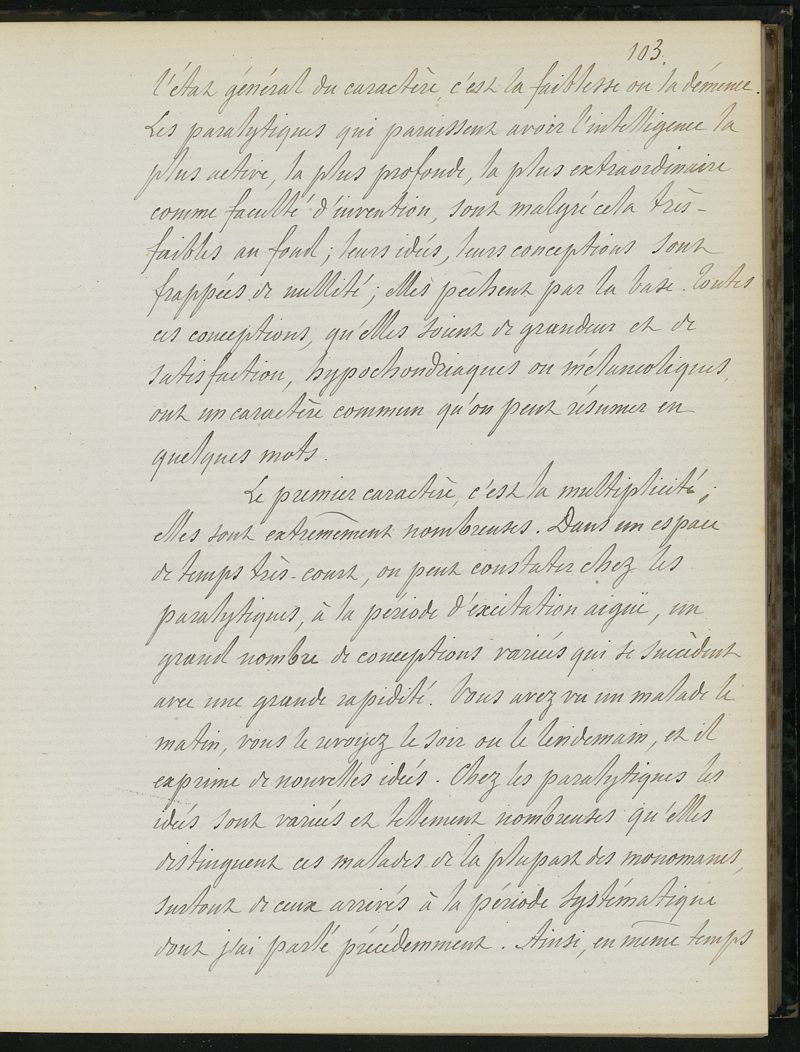 103.
l'état général du caractère, c'est la faiblesse ou la démence.
Les paralytiques qui paraissent avoir l'intelligence la
plus active, la plus profonde, la plus extraordinaire
comme faculté d'invention, sont malgré cela très-
faibles au fond; leurs idées, leurs conceptions sont
frappées de nullité; elles pêchent par la base. Toutes
ces conceptions, qu'elles soient de grandeur et de
satisfaction, hypochondriaques ou mélancoliques,
ont un caractère commun qu'on peut résumer en
quelques mots.
Le premier caractère, c'est la multiplicité;
elles sont extrêmement nombreuses. Dans un espace
de temps très-court, on peut constater chez les
paralytiques, à la période d'excitation aiguë, un
grand nombre de conceptions variées qui se succèdent
avec une grande rapidité. Vous avez vu un malade le
matin, vous le revoyez le soir ou le lendemain, et il
exprime de nouvelles idées. Chez les paralytiques les
idées sont variées et tellement nombreuses qu'elles
distinguent ces malades de la plupart des monomanes,
surtout de ceux arrivés à la période systématique
dont j'ai parlé précédemment. Ainsi, en même temps